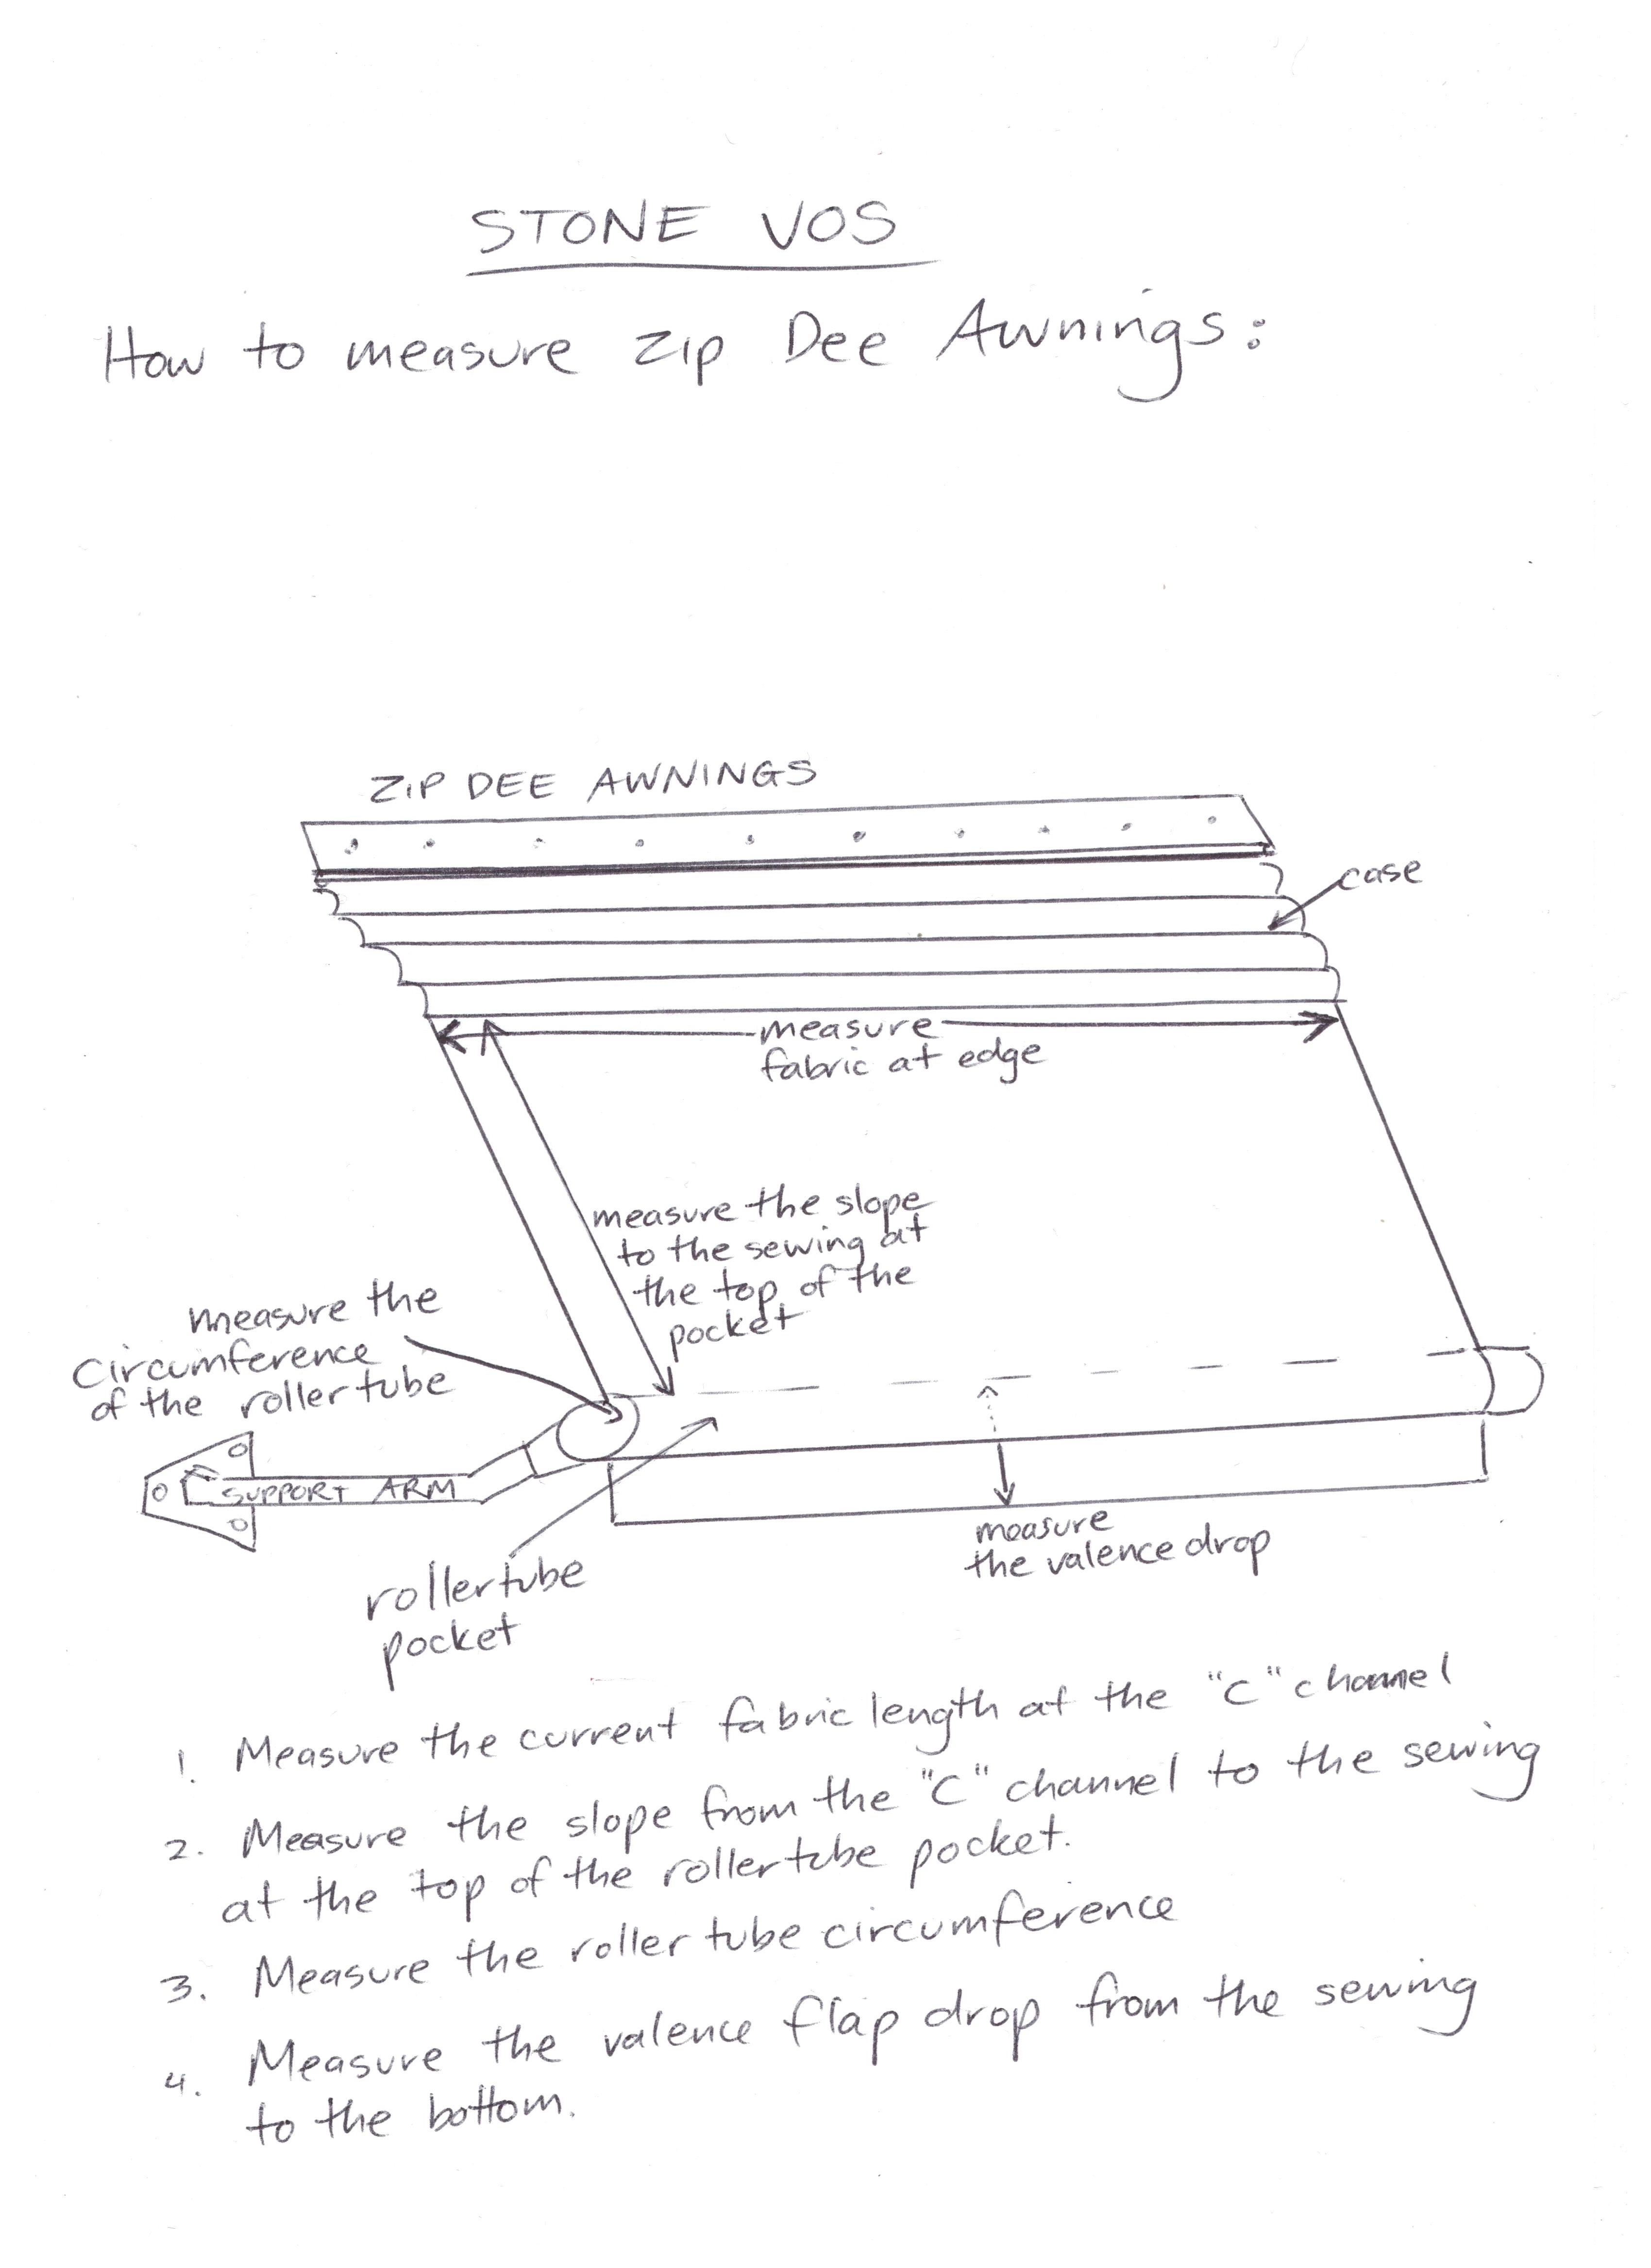 STONE VOS
How to measure Zip Dee Awnings:
ZIP DEE AWNINGS
case
measure
fabric at edge
measure the slope
to the sewing at
the top of the
pocket
measure the
circumference
of the roller tube
SUPPORT ARM
measure
the valence drop
rollertube
pocket
1. Measure the current fabric length at the "C" channel
2. Measure the slope from the "C" channel to the sewing
at the top of the rollertube pocket.
3. Measure the roller tube circumference
4. Measure the valence flap drop from the sewing
to the bottom.